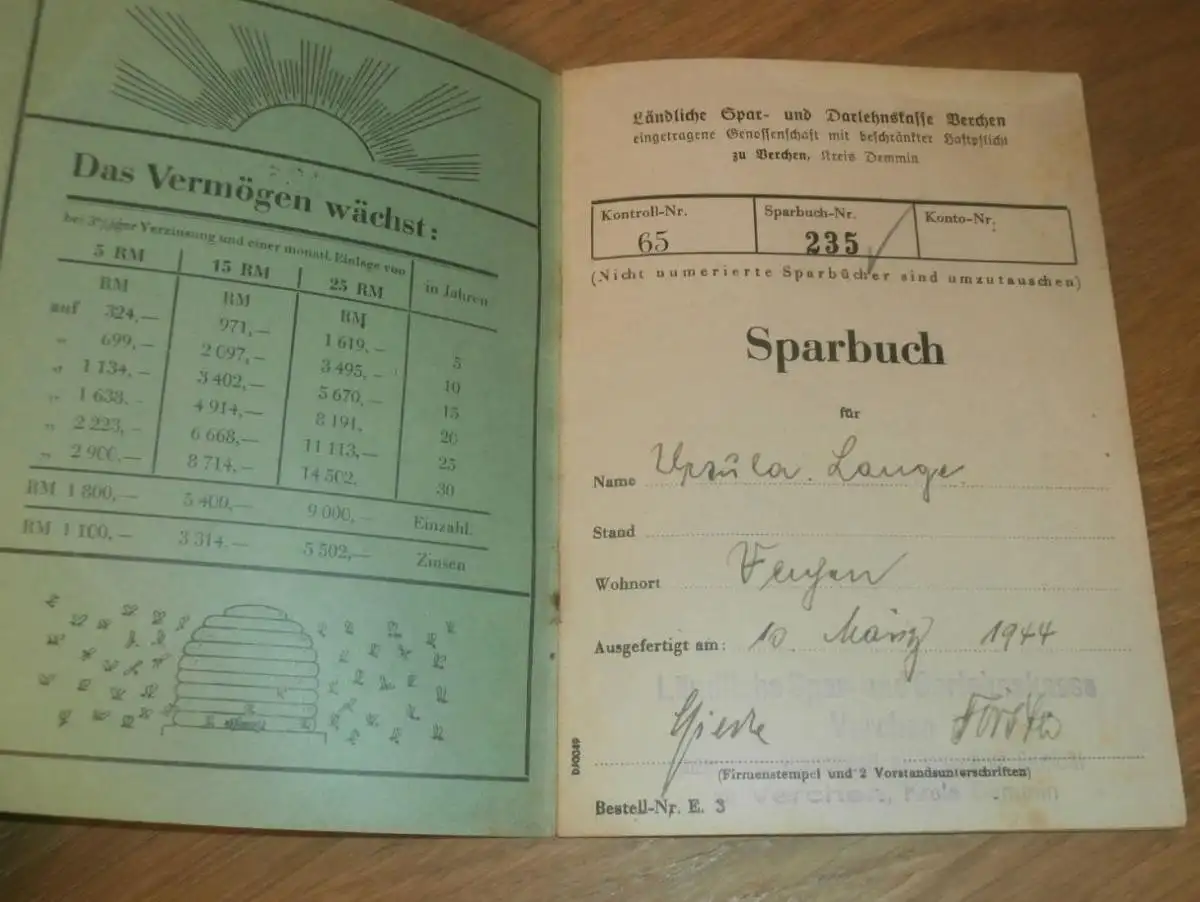 Das Vermögen wächst:
bei 3%iger Verzinsung und einer monatl. Einlage von
5 RM 15 RM 25 RM in Jahren
RM RM RM
auf 324,— 971,— 1 619,— 5
„ 699,— 2 097,— 3 495,— 10
„ 1 134,— 3 402,— 5 670,— 15
„ 1 638,— 4 914,— 8 191, 20
„ 2 223,— 6 668,— 11 113,— 25
„ 2 900,— 8 714,— 14 502, 30
RM 1 800,— 5 400,— 9 000,— Einzahl.
RM 1 100,— 3 314,— 5 502,— Zinsen
Ländliche Spar- und Darlehnskasse Verchen
eingetragene Genossenschaft mit beschränkter Haftpflicht
zu Verchen, Kreis Demmin
Kontroll-Nr. Sparbuch-Nr. Konto-Nr.
65 235
(Nicht numerierte Sparbücher sind umzutauschen)
Sparbuch
für
Name Ursula Lange
Stand
Wohnort Verchen
Ausgefertigt am: 10. März 1944
Ländliche Spar- und Darlehnskasse
Verchen
(Firmenstempel und 2 Vorstandsunterschriften)
Verchen, Kreis Demmin
Bestell-Nr. E. 3